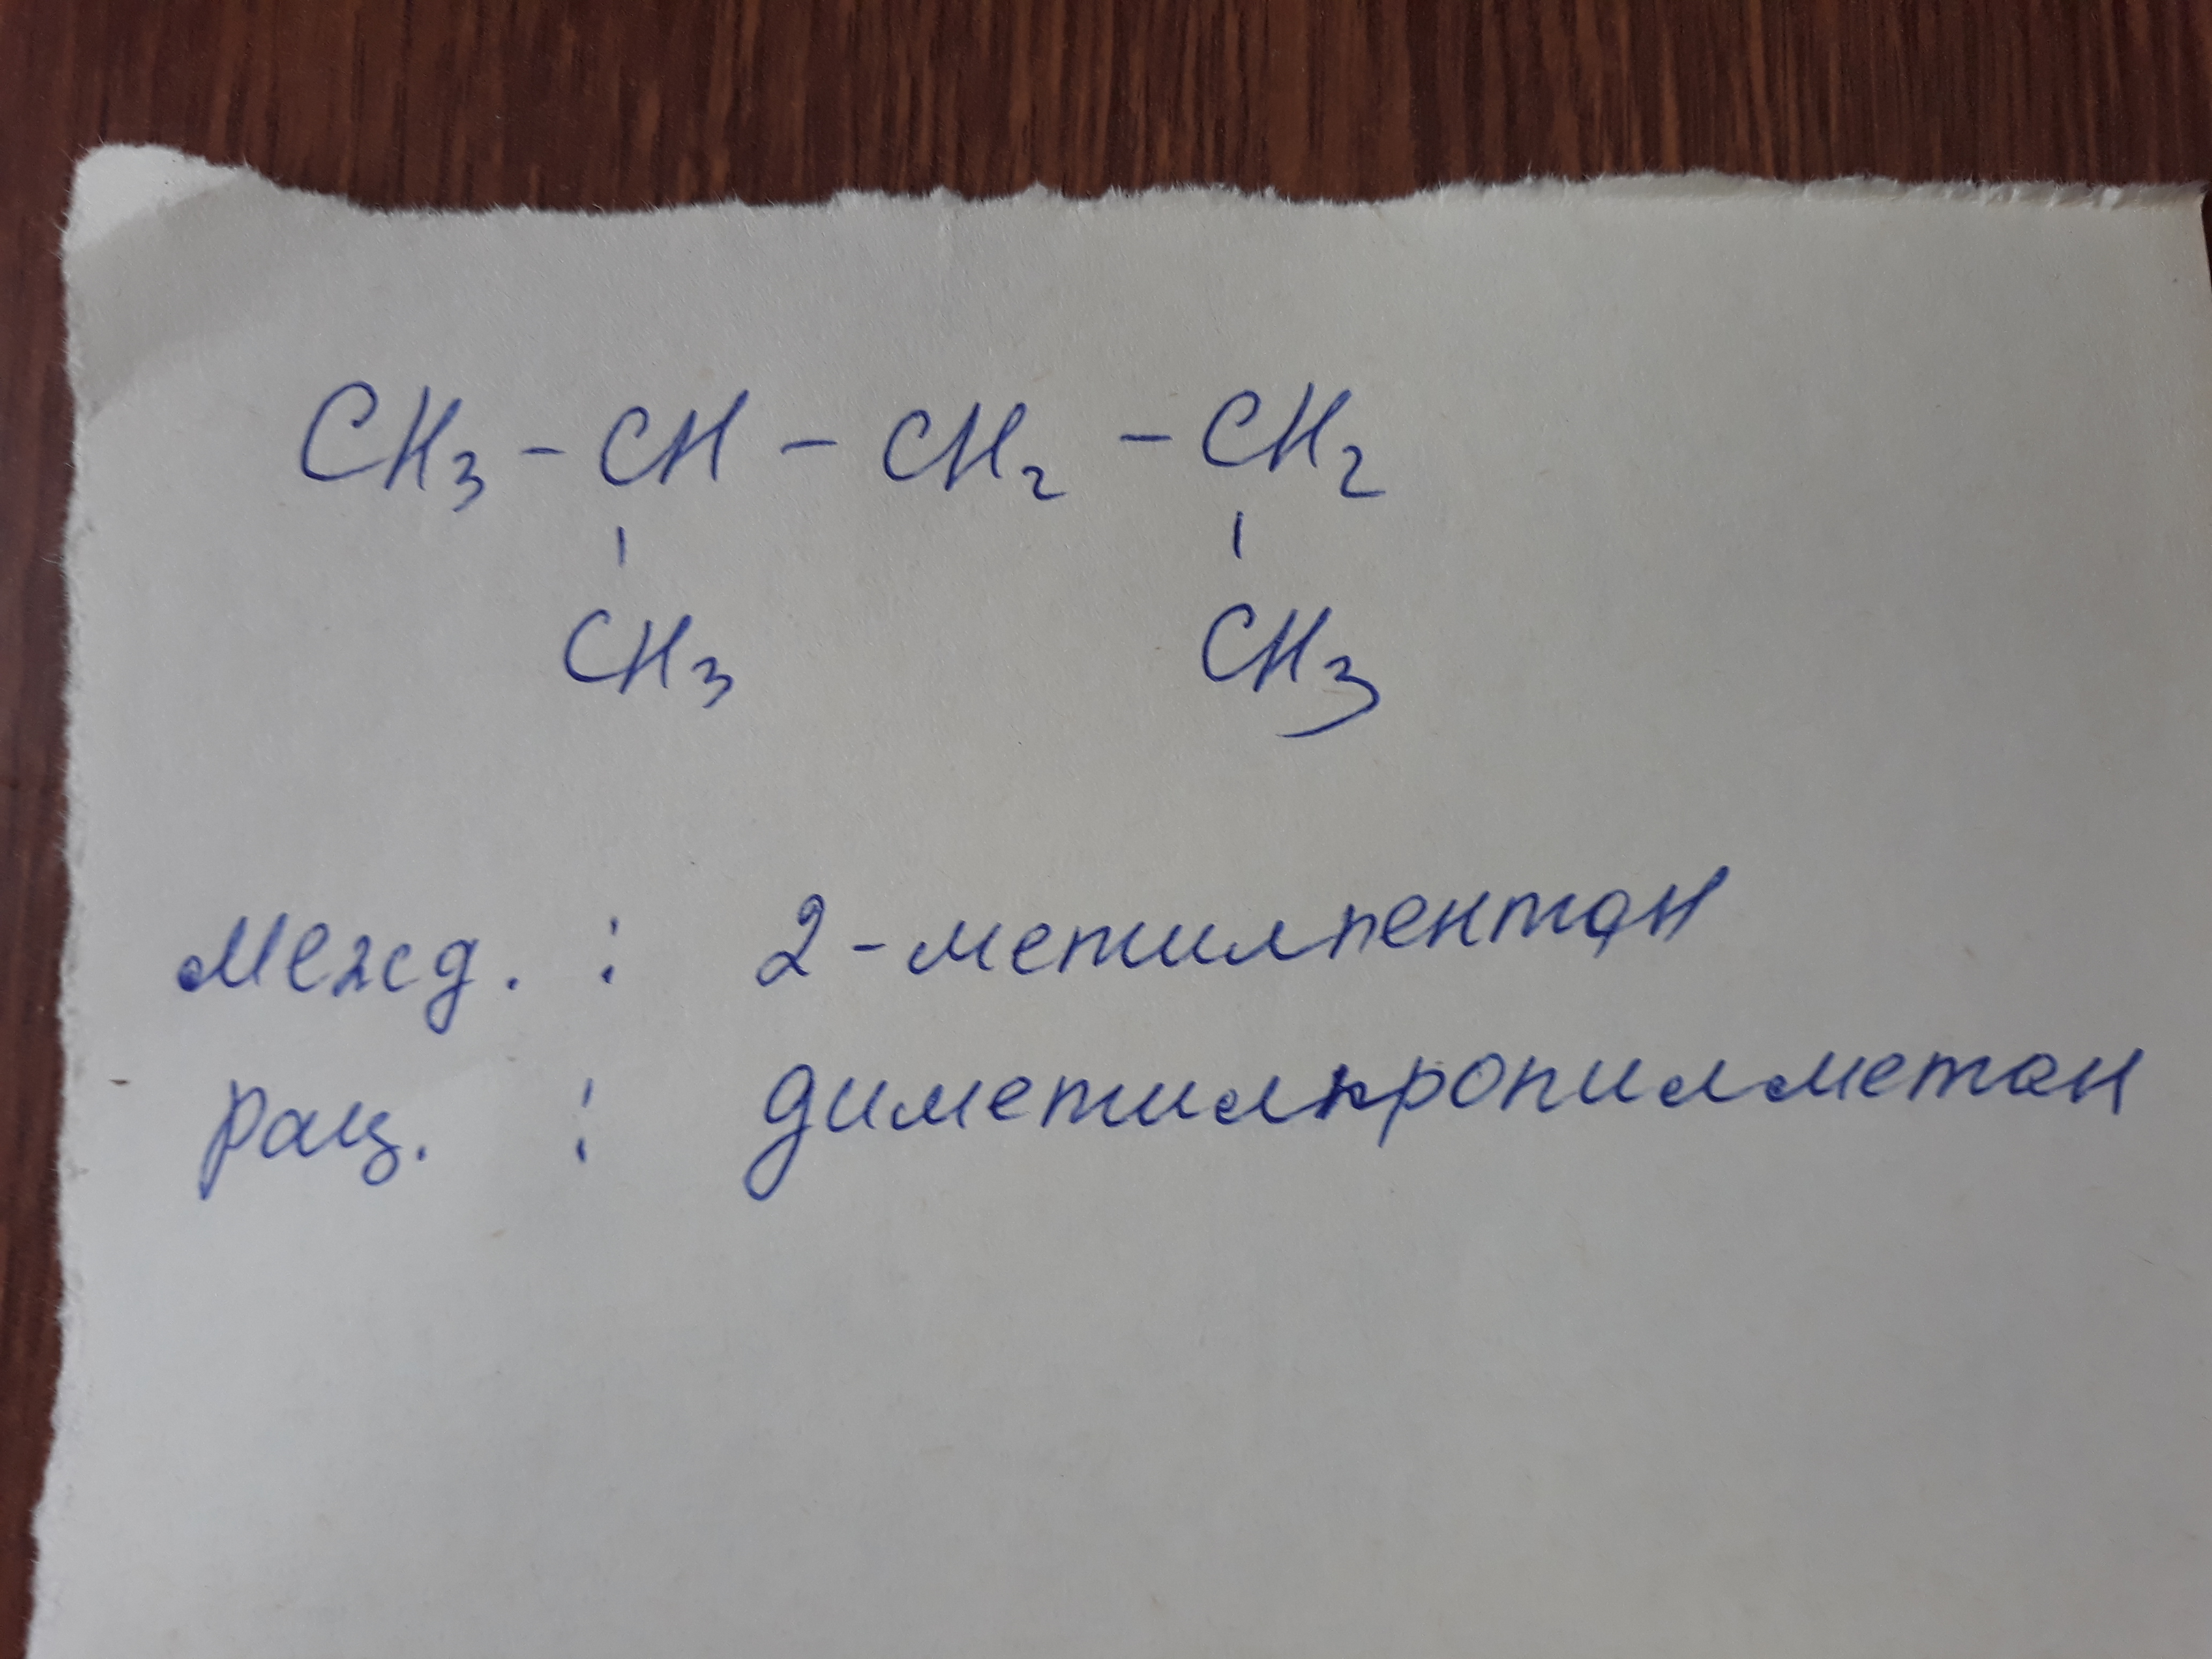 CH₃ - CH - CH₂ - CH₂
CH₃ CH₃
Межд. : 2-метилпентан
Рац. : диметилпропилметан